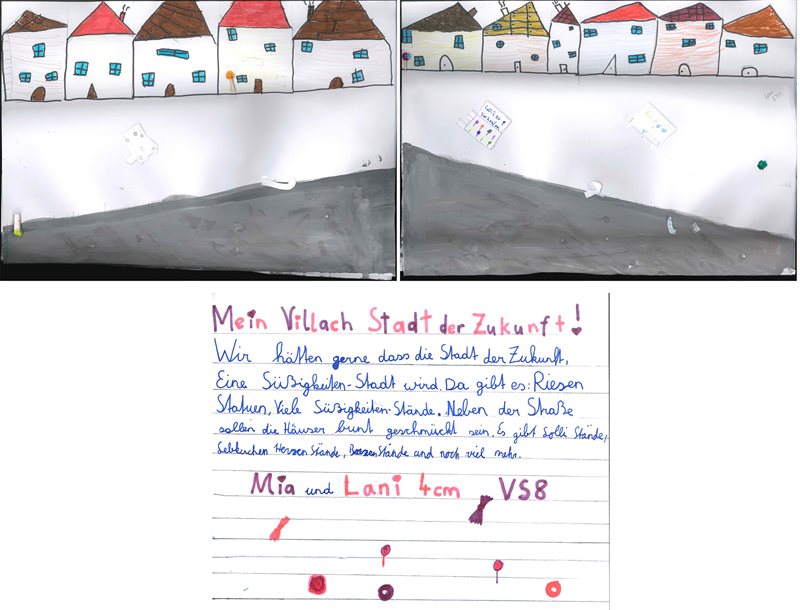 Mein Villach Stadt der Zukunft!
Wir hätten gerne dass die Stadt der Zukunft,
Eine Süßigkeiten-Stadt wird. Da gibt es: Riesen
Statuen, Viele Süßigkeiten-Stände. Neben der Straße
sollen die Häuser bunt geschmückt sein. Es gibt Lolli Stände,
Lebkuchen Herzen Stände, Stände und noch viel mehr.
Mia und Lani 4cm VS8